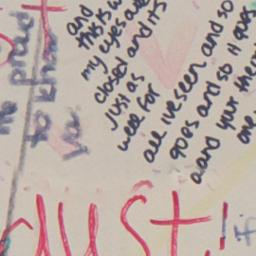 me proud
to know
you
and
this is w
my eyes are
closed and its
just as
well for
all ive seen and so
goes and so it goes
and your the
one
must!